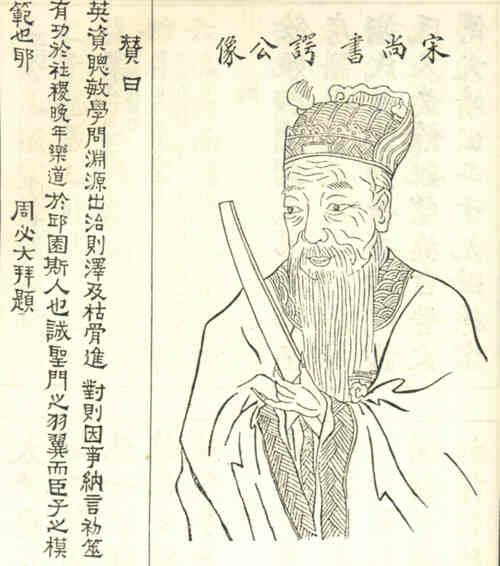 宋尚書諤公像
贊曰
英資聰敏學問淵源出治則澤及枯骨進對則因事納言初筮
有功於社稷晚年樂道於邱園斯人也誠聖門之羽翼而臣子之模
範也耶
周必大拜題